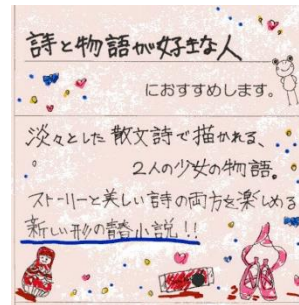 詩と物語が好きな人
におすすめします。
淡々とした散文詩で描かれる、
2人の少女の物語。
ストーリーと美しい詩の両方を楽しめる
新しい形の読書小説!!